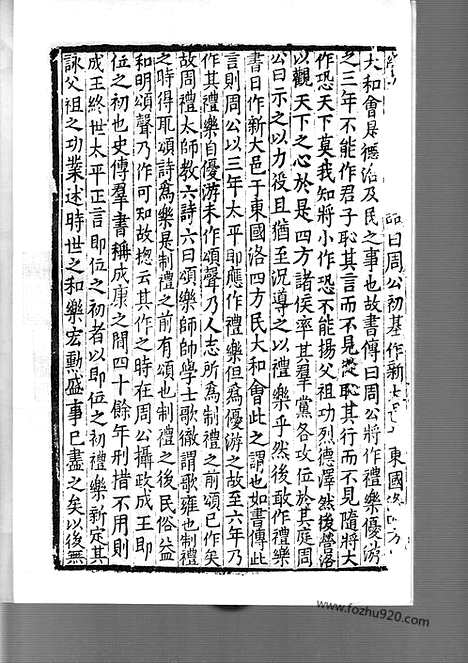 誥曰周公初基作新大 東國洛四方
大和會是德洽及民之事也故書傳曰周公將作禮樂優游
之三年不能作君子恥其言而不見從恥其行而不見隨將大
作恐天下莫我知將小作恐不能揚父祖功烈德澤然後營洛
以觀天下之心於是四方諸侯率其羣黨各攻位於其庭周
公曰示之以力役且猶至況導之以禮樂乎然後敢作禮樂
書曰作新大邑于東國洛四方民大和會此之謂也如書傳此
言則周公以三年太平即應作禮樂但爲優游之故至六年乃
作其禮樂自優游未作頌聲乃人志所爲制禮之前頌已作矣
故周禮太師教六詩六曰頌樂師帥學士歌徹謂歌雍也制禮
之時得取頌詩爲樂是制禮之前有頌也制禮之後民俗益
和明頌聲乃作可知故揔云其作之時在周公攝政成王即
位之初也史傳羣書稱成康之間四十餘年刑措不用則
成王終世太平正言即位之初者以即位之初禮樂新定其
詠父祖之功業述時世之和樂宏勳盛事已盡之矣以後無
www.fozhu920.com